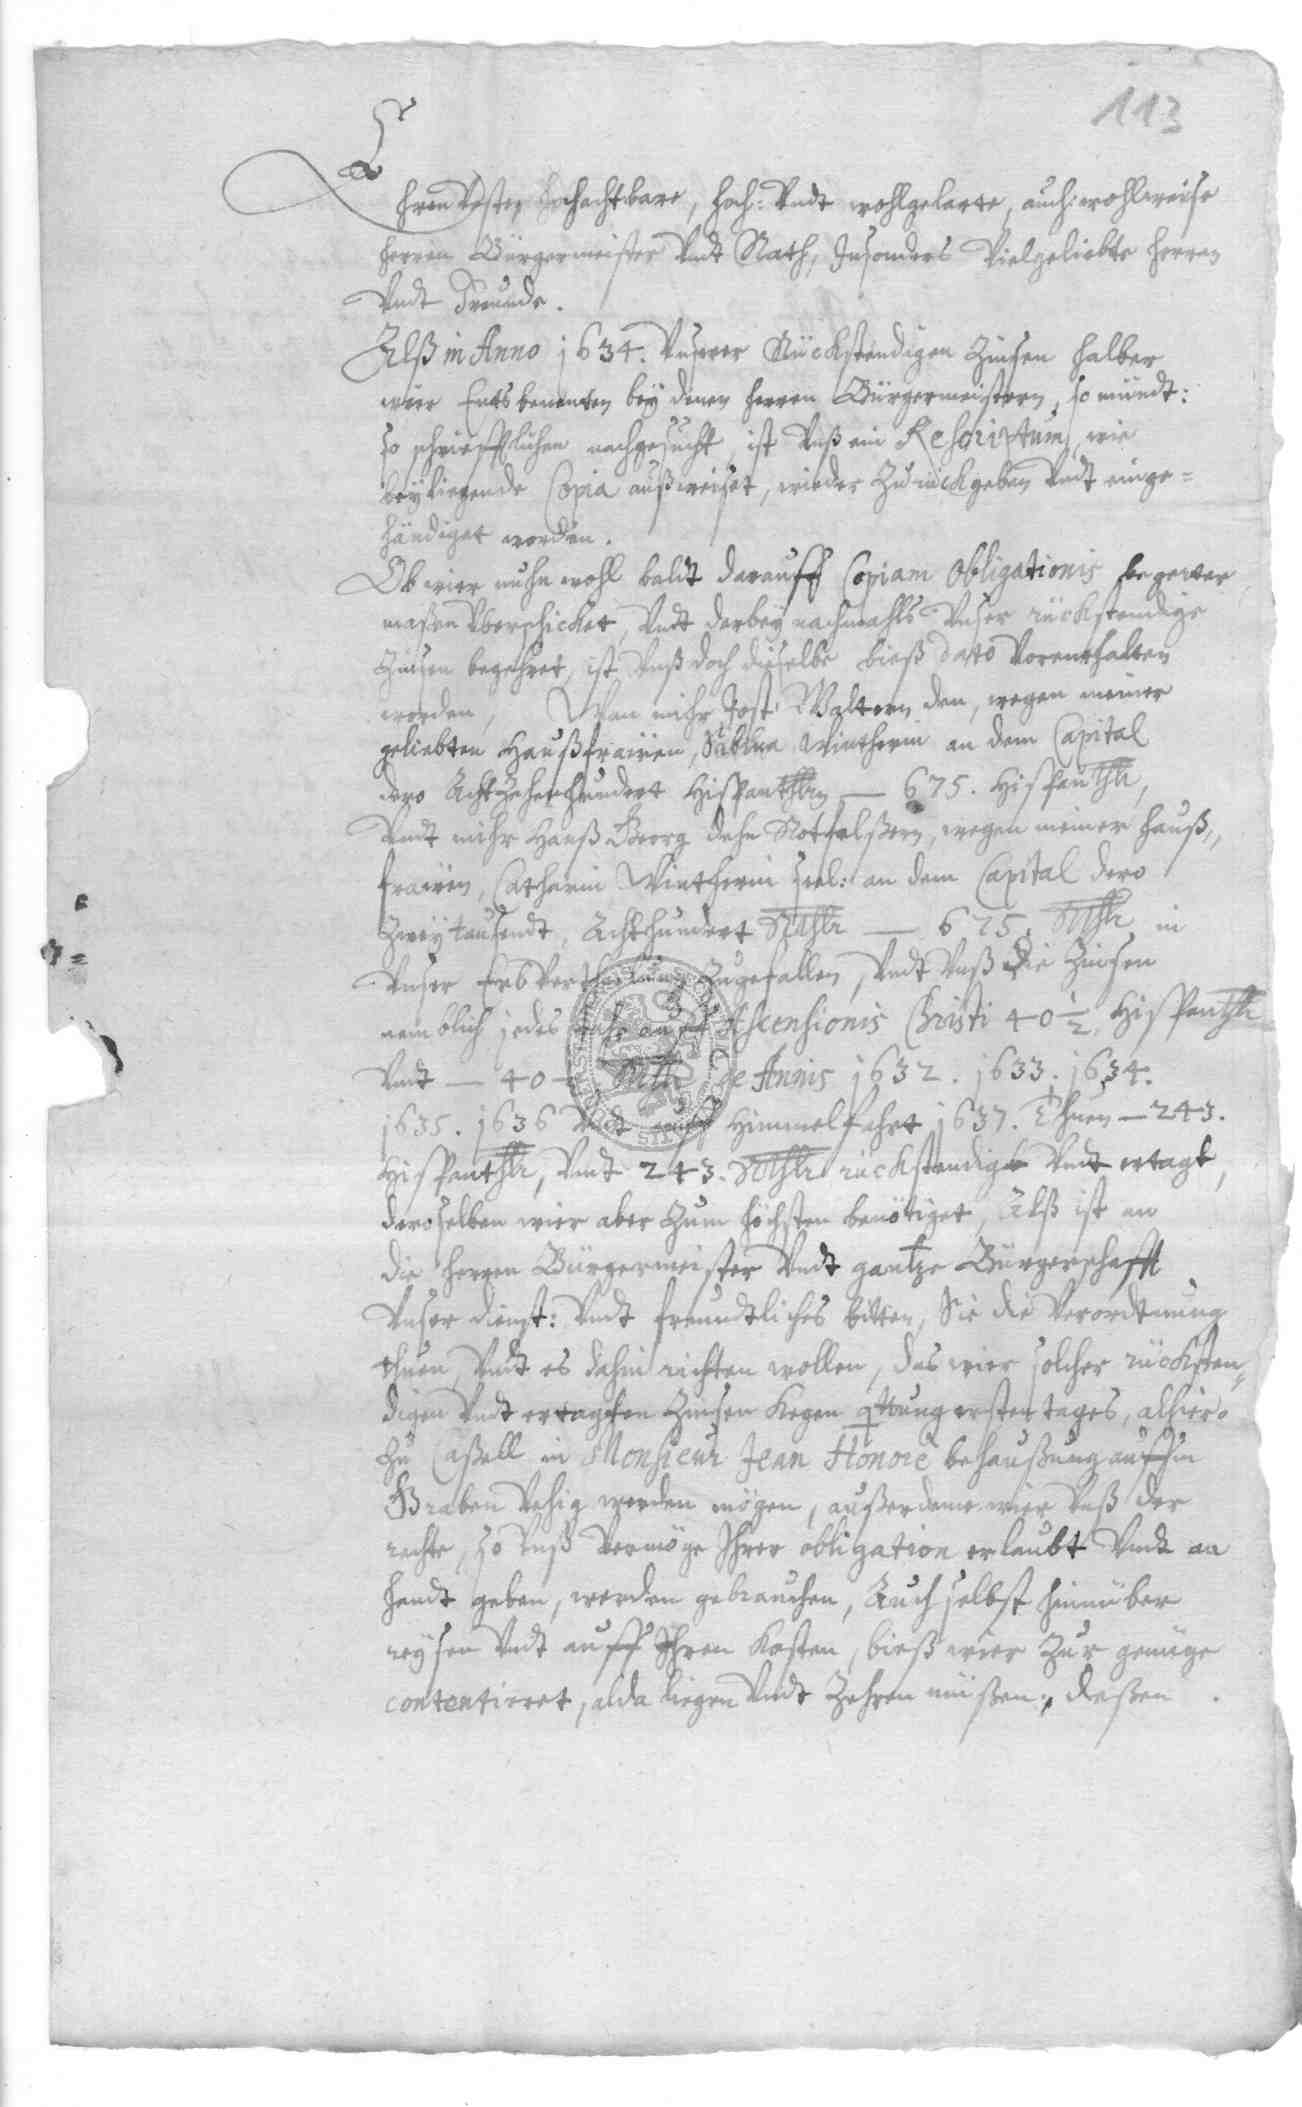 113
Ehrenveste, hochachtbare, hoch: Vndt wohlgelarte, auch wohlweise
herren Bürgermeister Vndt Rath, Insonders Vielgeliebte herren
Vndt Freunde.
Alß in Anno 1634. Vnserer Rückstendigen Zinsen halber
wier Entsbenenten bey denen herren Bürgermeistern, so mündt:
so schriefftlichen nachgesucht, ist Vnß ein Rescriptum, wie
beyliegende Copia außweiset, wieder Zurückgeben Vndt einge=
händiget worden.
Ob wier nuhn wohl baldt darauff Copiam obligationis begerter
maßen Vberschicket, Vndt darbey nachmahls Vnser rückstendige
Zinsen begehret, ist Vnß doch dieselbe bieß dato Vorenthalten
worden, Wan mihr Jost Waltern den, wegen meiner
geliebten Haußfrawen, Sabina Wintherin an dem Capital
dero Achtzehenhundert Hispanthlrn — 675. Hispanthlr,
Vndt mihr Hanß Georg dehn Rotfelßern, wegen meiner hauß,,
frawen, Catharin Wintherin seel: an dem Capital dero
Zweytausendt, Achthundert Rthlr — 675. Rthlr in
Vnser Erbvertheilung Zugefallen, Vndt Vnß die Zinsen
nemblich jedes Jahr auff Ascensionis Christi 40½ Hispanthlr
Vndt — 40½ Rthlr de Annis 1632. 1633. 1634.
1635. 1636 Vndt auff Himmelfahrt 1637. Thuen — 243.
Hispanthlr, Vndt 243. Rthlr rückstendigk Vndt ertagt,
deroselben wier aber Zum höchsten benötiget, Alß ist an
die herren Bürgermeister Vndt gantze Bürgerschafft
Vnser dienst: Vndt freundtliches bitten, Sie die Verordtnung
thuen, Vndt es dahin richten wollen, das wier solcher rücksten,,
digen Vndt ertagten Zinsen Kegen quittung ersten tages, alhier
Zu Caßell in Monsieur Jean Honoré behaußung auffm
Graben Vehig werden mögen, außerdeme wier Vnß der
rechte, so Vnß Vermöge Ihrer obligation erlaubt Vndt an
handt geben, werden gebrauchen, Auch selbst hinnüber
reysen Vndt auff Ihren Kosten, bieß wier Zur genüge
contentieret, alda liegen Vndt Zehren müßen, deßen